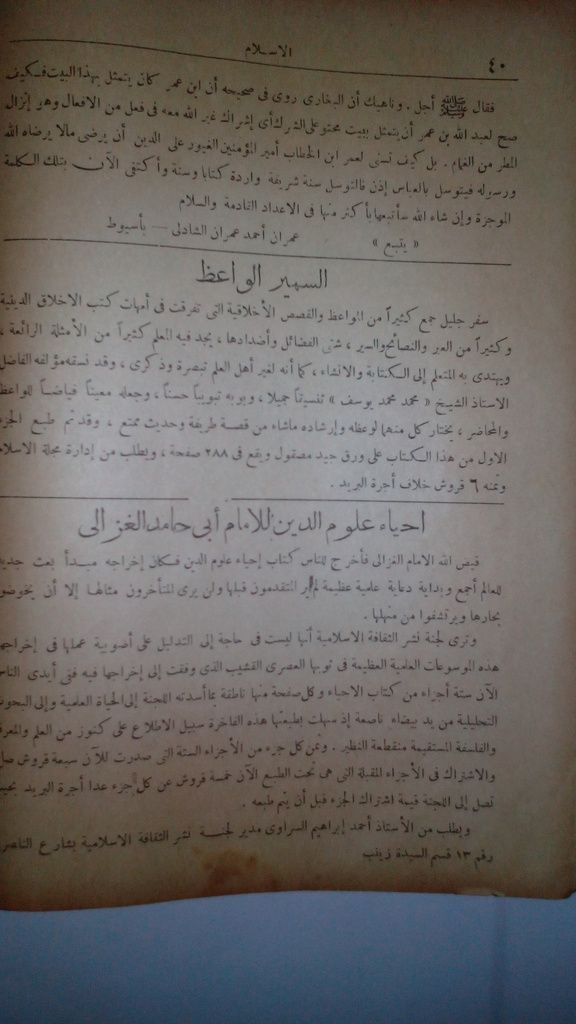 ٤٠
الاسلام
فقال ﷺ أجل. وناهيك أن البخارى روى فى صحيحه أن ابن عمر كان يتمثل بهذا البيت فكيف
صح لعبد الله بن عمر أن يتمثل ببيت محتو على الشرك أى إشراك غير الله معه فى فعل من الافعال وهو إنزال
المطر من الغمام. بل كيف تسنى لعمر ابن الخطاب أمير المؤمنين الغيور على الدين أن يرضى مالا يرضاه الله
ورسوله فيتوسل بالعباس إذن فالتوسل سنة شريفة واردة كتابا وسنة وأكتفى الآن بتلك الكلمة
الموجزة وإن شاء الله سأتبعها بأكثر منها فى الاعداد القادمة والسلام
« يتبع » عمران أحمد عمران الشاذلى — بأسيوط
السمير الواعظ
سفر جليل جمع كثيراً من المواعظ والقصص الأخلاقية التى تفرقت فى أمهات كتب الاخلاق الدينية
وكثيراً من العبر والنصائح والسير، شتى الفضائل وأضدادها، يجد فيه المعلم كثيراً من الأمثلة الرائعة،
ويهتدى به المتعلم إلى الكتابة والانشاء، كما أنه لغير أهل العلم تبصرة وذكرى، وقد نسقه مؤلفه الفاضل
الاستاذ الشيخ « محمد محمد يوسف » تنسيقاً جميلا، وبوبه تبويباً حسناً، وجعله معيناً فياضاً للواعظ
والمحاضر، يختار كل منهما لوعظه وإرشاده ماشاء من قصة طريفة وحديث ممتع، وقد تم طبع الجزء
الاول من هذا الكتاب على ورق جيد مصقول ويقع فى ٢٨٨ صفحة، ويطلب من إدارة مجلة الاسلام
وثمنه ٦ قروش خلاف أجرة البريد.
احياء علوم الدين للامام أبى حامد الغزالى
قيض الله الامام الغزالى فأخرج للناس كتاب إحياء علوم الدين فكان إخراجه مبدأ بعث جديد
للعالم أجمع وبداية دعاية علمية عظيمة لم ير المتقدمون قبلها ولن يرى المتأخرون مثالها إلا أن يخوضوا
بحارها ويرتشفوا من منهلها.
وترى لجنة نشر الثقافة الاسلامية أنها ليست فى حاجة إلى التدليل على أضوبية عملها فى إخراجها
هذه الموسوعات العلمية العظيمة فى ثوبها العصرى القشيب الذى وفقت إلى إخراجها فيه فى أيدى الناس
الآن ستة أجزاء من كتاب الاحياء وكل صفحة منها ناطقة بما أسدته اللجنة إلى الحياة العلمية وإلى البحوث
التحليلية من يد بيضاء ناصعة إذ سهلت بطبعتها هذه الفاخرة سبيل الاطلاع على كنوز من العلم والمعرفة
والفلسفة المستقيمة منقطعة النظير. وثمن كل جزء من الأجزاء الستة التى صدرت للآن سبعة قروش صاغ
والاشتراك فى الأجزاء المقبلة التى هى تحت الطبع الآن خمسة قروش عن كل جزء عدا أجرة البريد بحيث
تصل إلى اللجنة قيمة اشتراك الجزء قبل أن يتم طبعه.
ويطلب من الأستاذ أحمد إبراهيم السراوى مدير لجنة نشر الثقافة الاسلامية بشارع الناصرية
رقم ١٣ قسم السيدة زينب